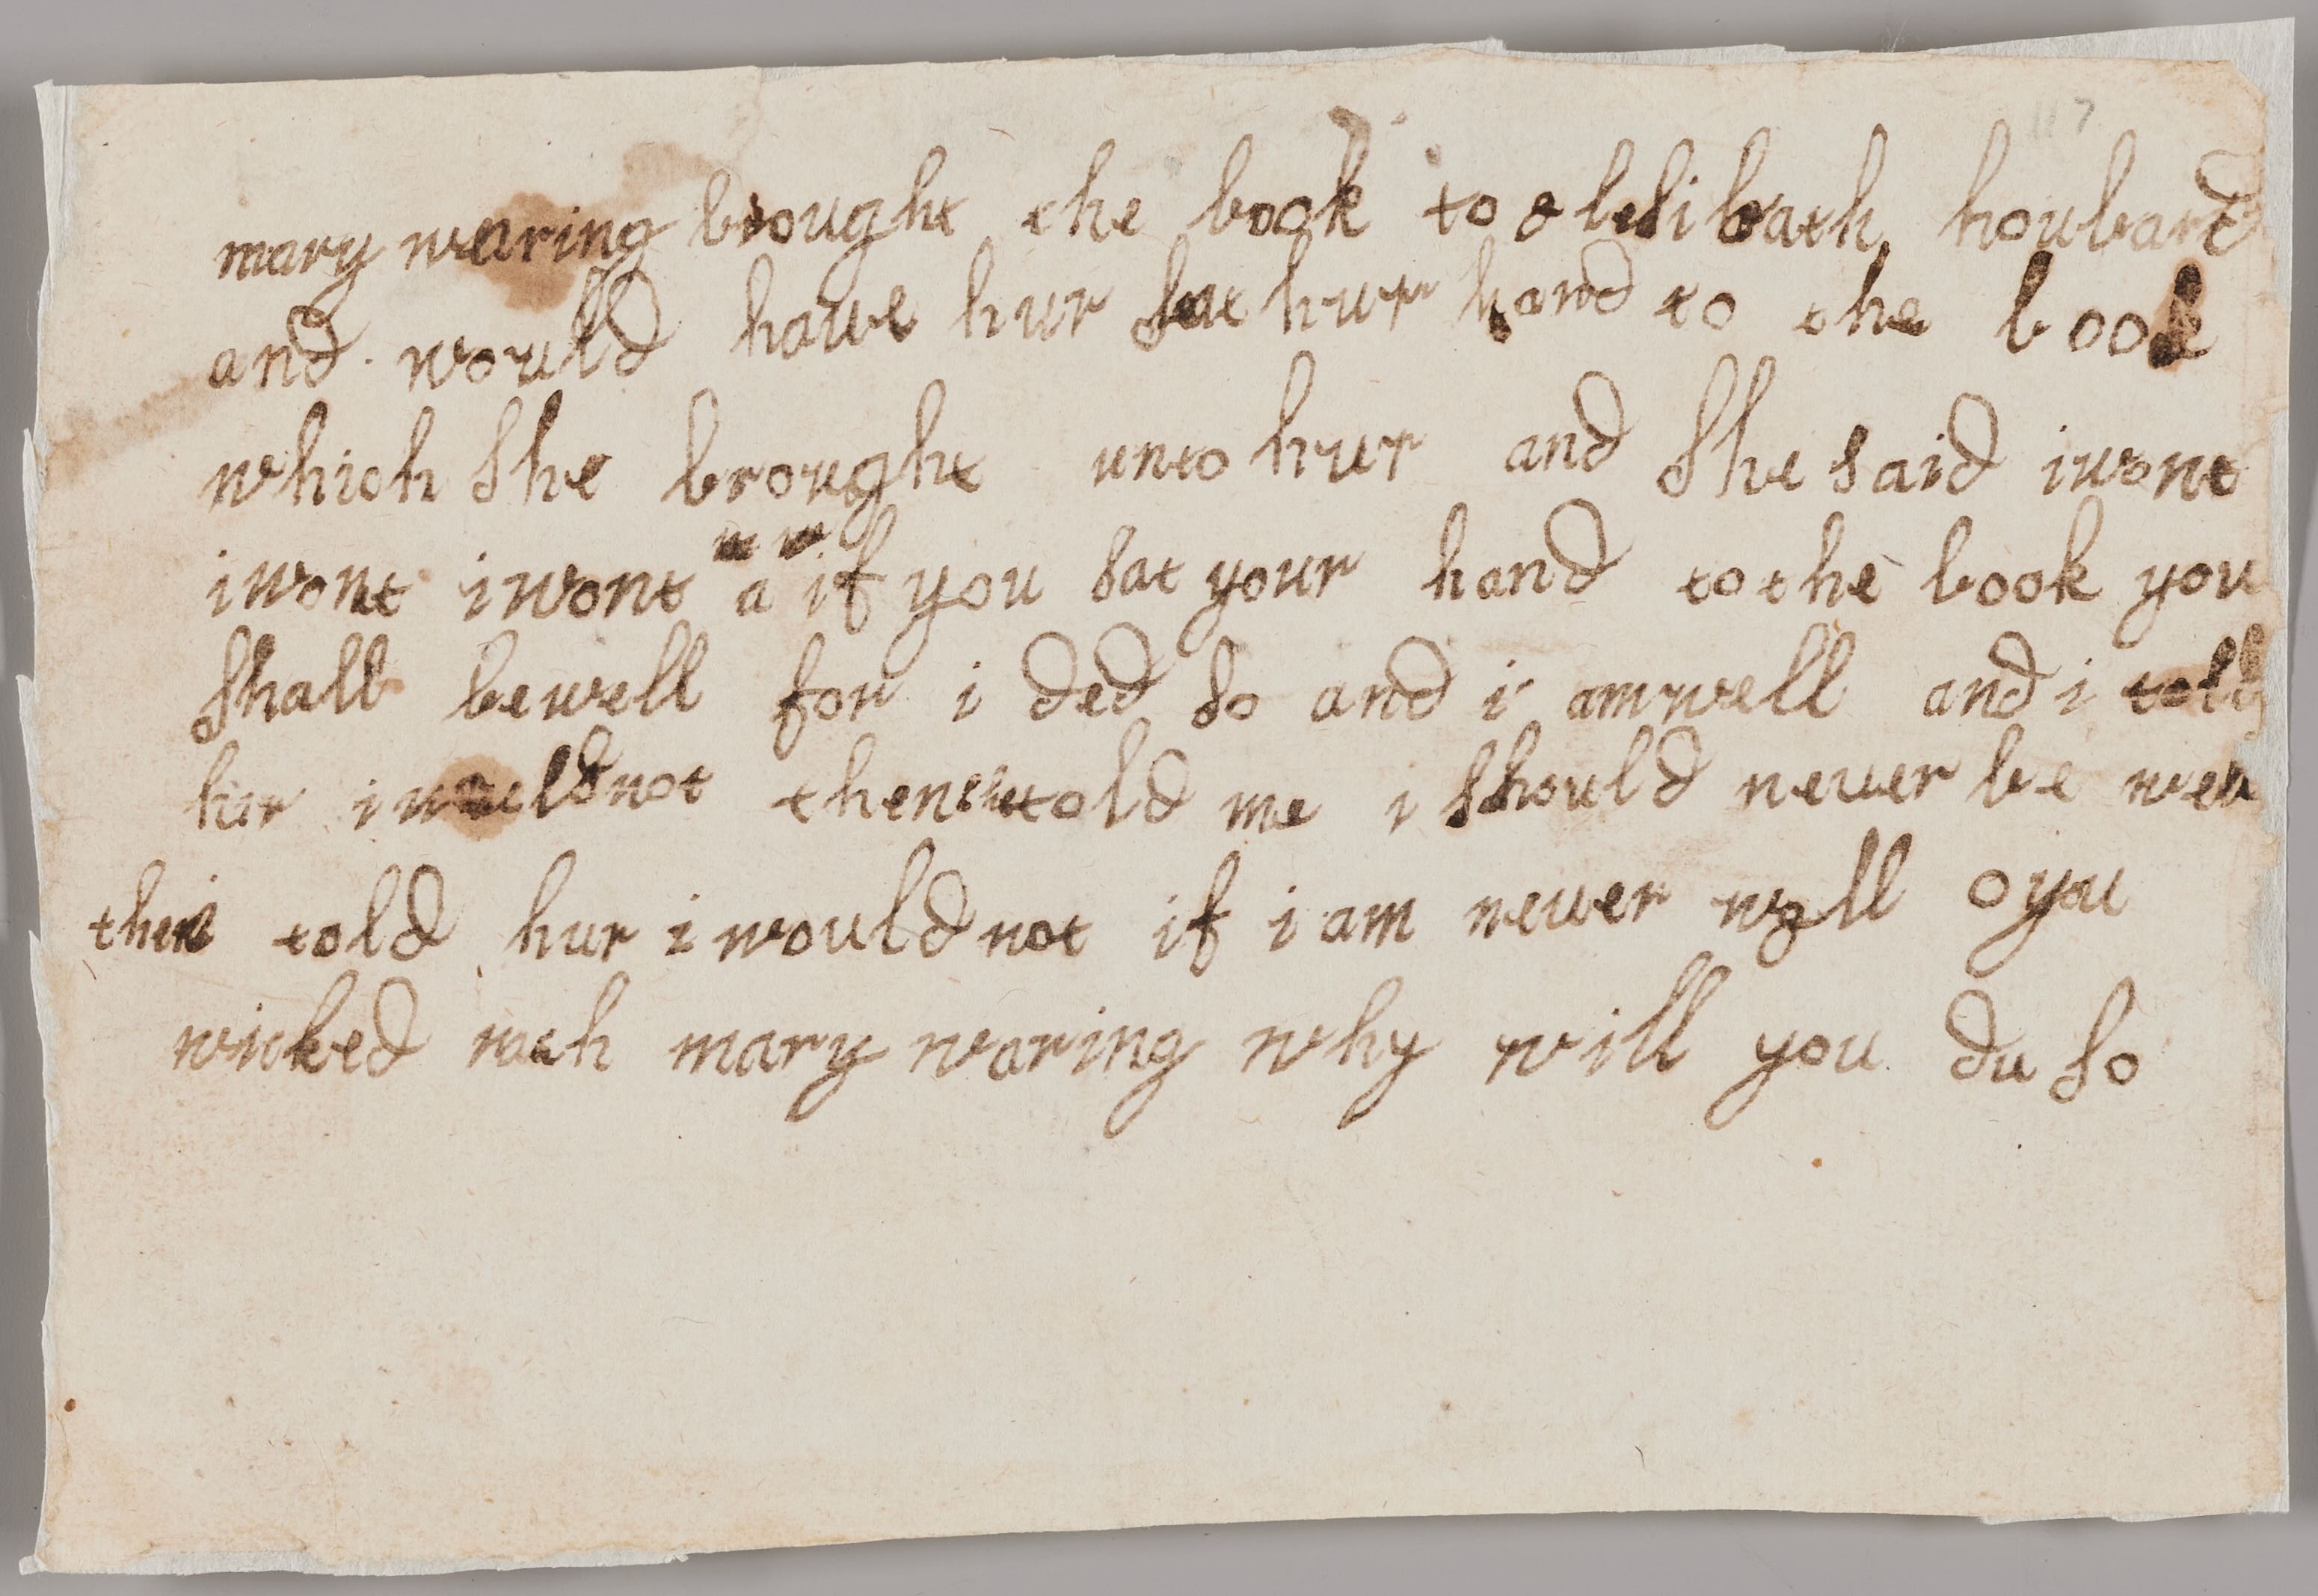 mary waring brought the book to elesibath houbard
and would haue hur sat hur hand to the book
which she brought unto hur and she said i wont
i wont i wont a if you sat your hand to the book you
shall be well for i ded so and i am well and i told
hur i would not then she told me i should neuer be well
then i told hur i would not if i am neuer well o you
wicked wich mary waring why will you du so